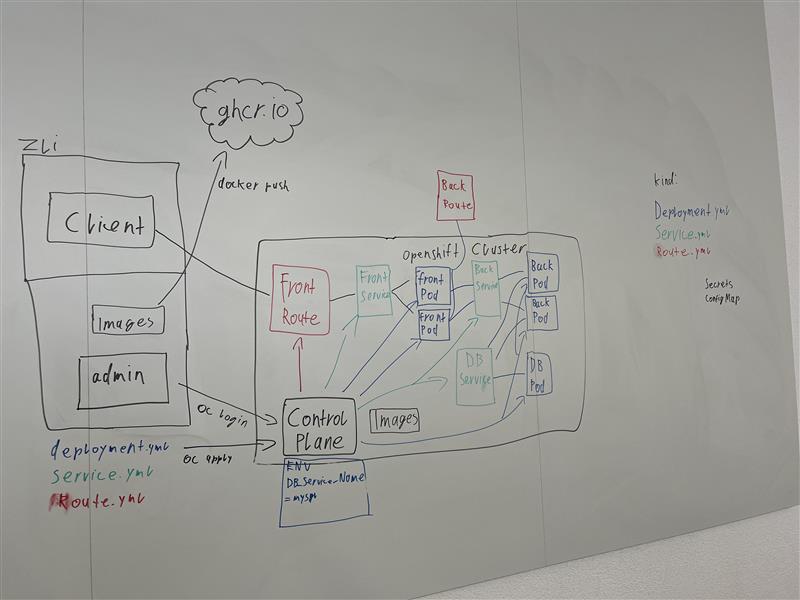 ghcr.io
ZLi
docker push
Client
Images
admin
OC Login
OC apply
deployment.yml
Service.yml
Route.yml
Back
Route
Openshift Cluster
Front
Route
Front
Service
Front
Pod
Front
Pod
Back
Service
Back
Pod
Back
Pod
DB
Service
DB
Pod
Control
Plane
Images
ENV
DB_Service_Name
kind:
Deployment.yml
Service.yml
Route.yml
Secrets
ConfigMap